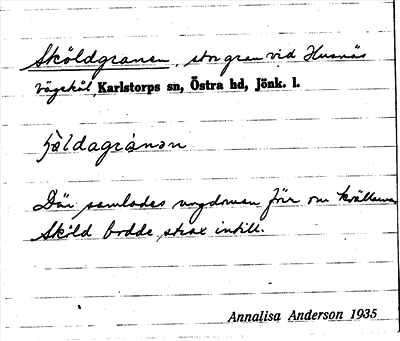 Sköldgranen, stor gran vid Husnäs
vägskäl, Karlstorps sn, Östra hd, Jönk. l.
Där samlades ungdomen förr om kvällarna
Sköld bodde strax intill.
Annalisa Anderson 1935